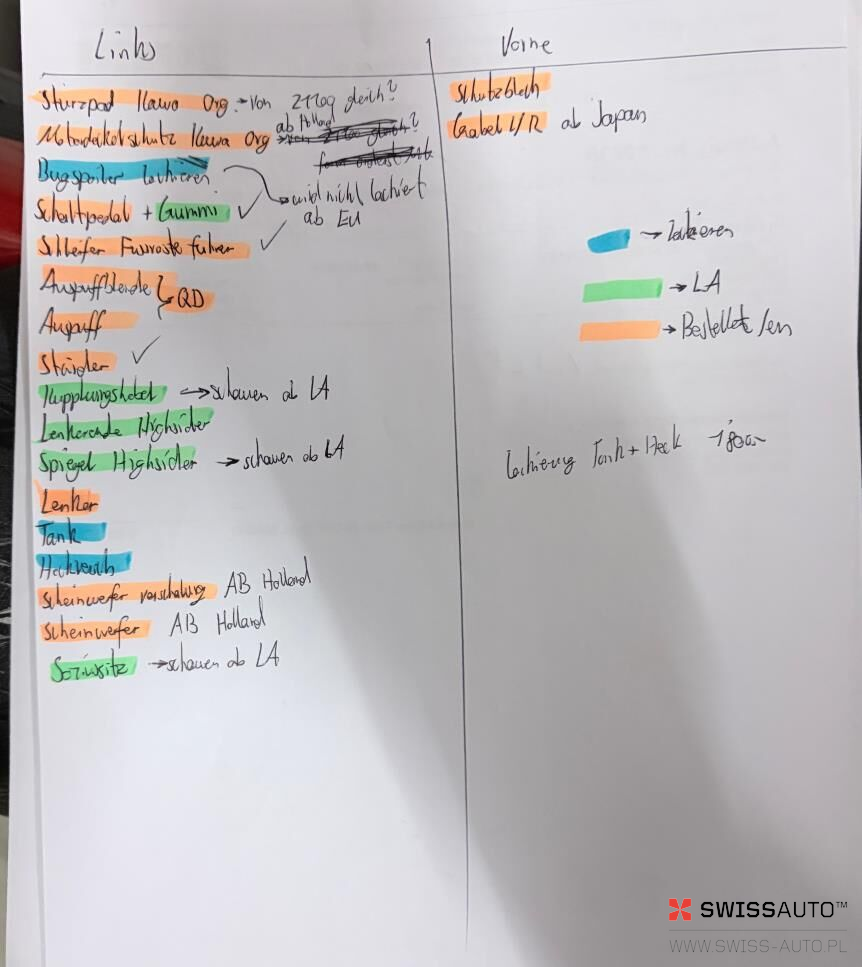 Links
Sturzpad Kawa Org. → Von Z1100 gleich?
Motordeckelschutz Kawa Org
ab Holland
Bugspoiler lackieren
→ wird nicht lackiert
ab EU
Schaltpedal + Gummi ✓
Schleifer Fussraste fahrer ✓
Auspuffblende
QD
Auspuff
Ständer ✓
Kupplungshebel → schauen ab LA
Lenkerende Highsider
Spiegel Highsider → schauen ab LA
Lenker
Tank
Heck
Scheinwerfer verschalung AB Holland
Scheinwerfer AB Holland
Soziusitz → schauen ab LA
Vorne
Schutzblech
Gabel L/R ab Japan
→ Lackieren
→ LA
→ Bestellt/en
Lackierung Tank + Heck
SWISSAUTO™
WWW.SWISS-AUTO.PL